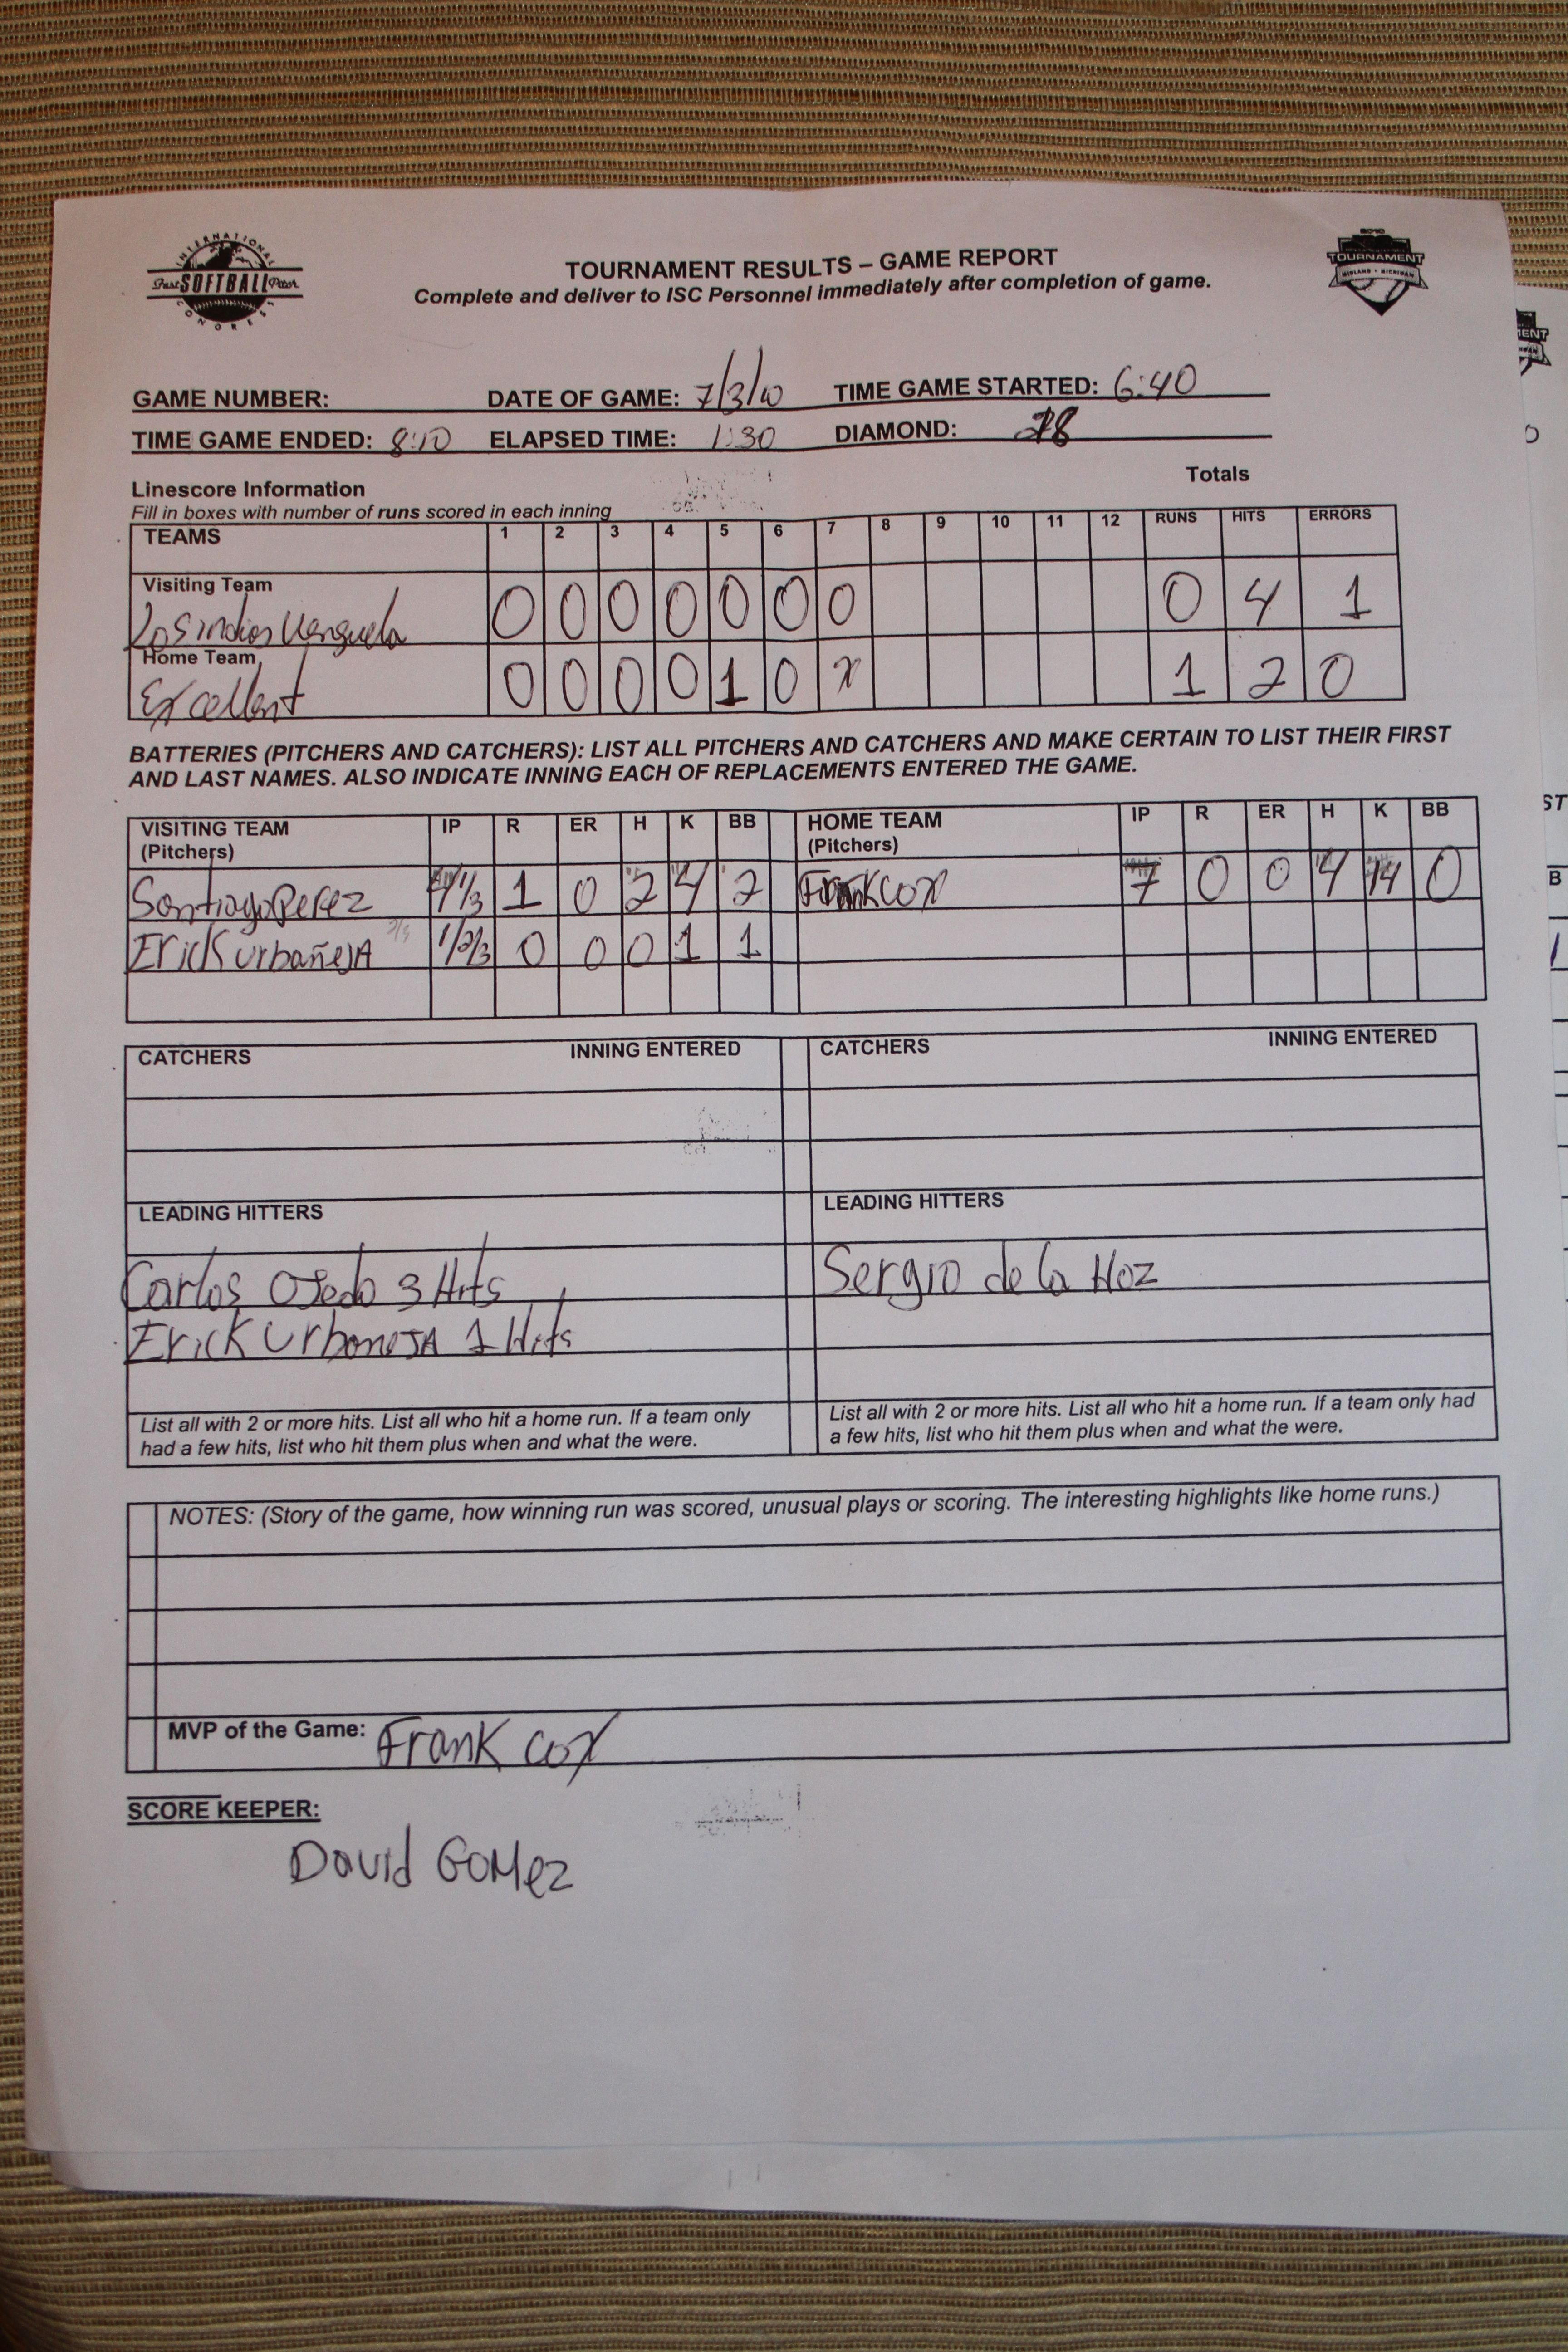 INTERNATIONAL
Fast SOFTBALL Pitch
CONGRESS
2010
TOURNAMENT
MIDLAND • MICHIGAN
TOURNAMENT RESULTS – GAME REPORT
Complete and deliver to ISC Personnel immediately after completion of game.
GAME NUMBER: DATE OF GAME: 7/3/10 TIME GAME STARTED: 6:40
TIME GAME ENDED: 8:10 ELAPSED TIME: 1:30 DIAMOND:
Totals
Linescore Information
Fill in boxes with number of runs scored in each inning
TEAMS 1 2 3 4 5 6 7 8 9 10 11 12 RUNS HITS ERRORS
Visiting Team
Los indios 0 0 0 0 0 0 0 0 4 1
Home Team
Excellent 0 0 0 0 1 0 x 1 2 0
BATTERIES (PITCHERS AND CATCHERS): LIST ALL PITCHERS AND CATCHERS AND MAKE CERTAIN TO LIST THEIR FIRST
AND LAST NAMES. ALSO INDICATE INNING EACH OF REPLACEMENTS ENTERED THE GAME.
VISITING TEAM IP R ER H K BB HOME TEAM IP R ER H K BB
(Pitchers) (Pitchers)
Santiago Perez 4 1/3 1 0 2 4 2 Frank cox 7 0 0 4 14 0
Erick urbañeJA 1/2/3 0 0 0 1 1
CATCHERS INNING ENTERED CATCHERS INNING ENTERED
LEADING HITTERS LEADING HITTERS
Carlos OJeda 3 Hits Sergio de la Hoz
Erick UrbaneJA 1 Hits
List all with 2 or more hits. List all who hit a home run. If a team only
had a few hits, list who hit them plus when and what the were.
List all with 2 or more hits. List all who hit a home run. If a team only had
a few hits, list who hit them plus when and what the were.
NOTES: (Story of the game, how winning run was scored, unusual plays or scoring. The interesting highlights like home runs.)
MVP of the Game: Frank cox
SCORE KEEPER:
David GoMez